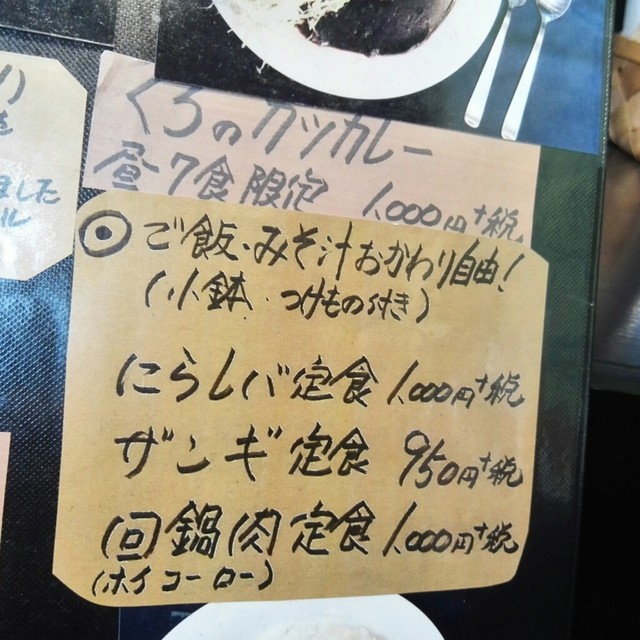 くろのカツカレー
昼7食限定 1,000円+税
◎ご飯・みそ汁おかわり自由!
(小鉢・つけもの付き)
にらレバ定食 1,000円+税
ザンギ定食 950円+税
回鍋肉定食 1,000円+税
(ホイコーロー)
ました
ル